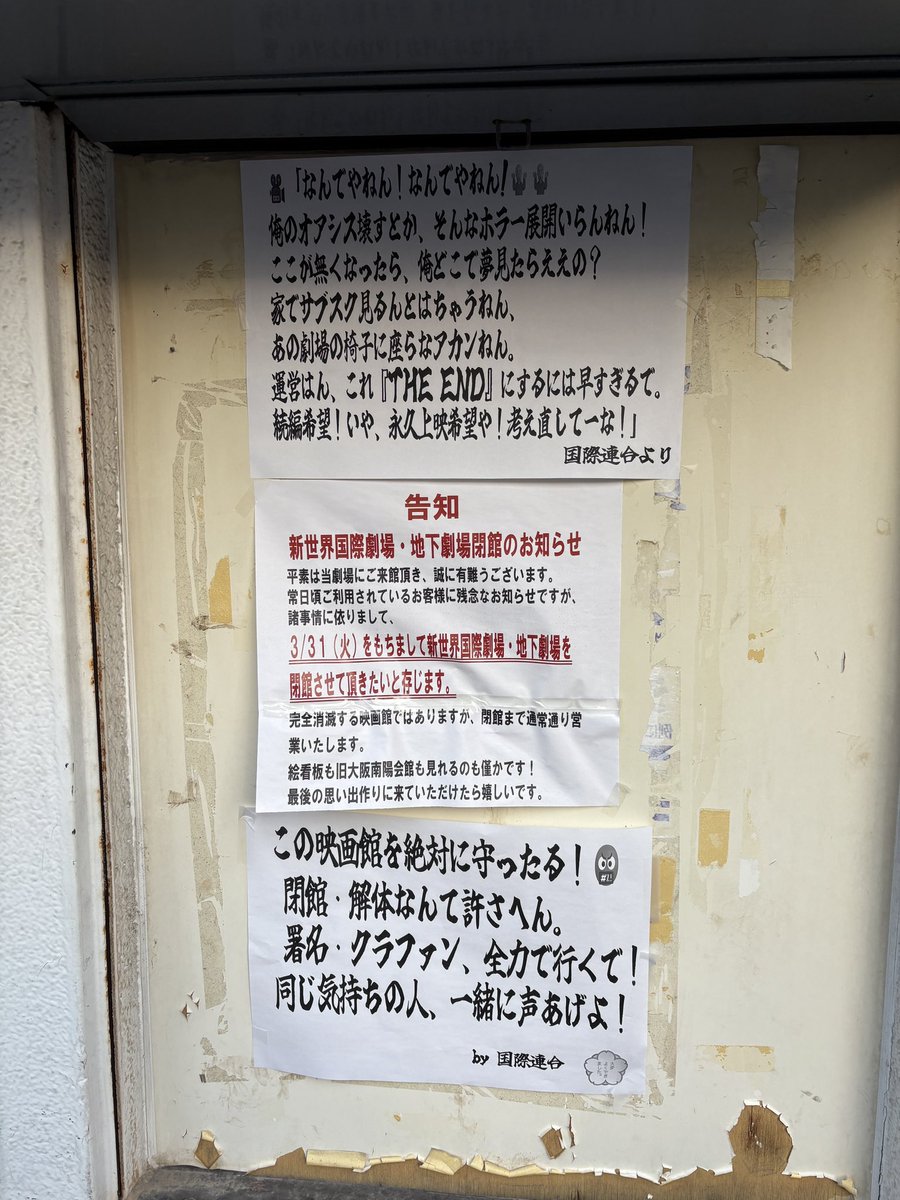 「なんでやねん！なんでやねん!
俺のオアシス壊すとか、そんなホラー展開いらんねん！
ここが無くなったら、俺どこで夢見たらええの？
家でサブスク見るんとはちゃうねん、
あの劇場の椅子に座らなアカンねん。
運営はん、これ『THE END』にするには早すぎるで。
続編希望！いや、永久上映希望や！考え直してーな！」
国際連合より
告知
新世界国際劇場・地下劇場閉館のお知らせ
平素は当劇場にご来館頂き、誠に有難うございます。
常日頃ご利用されているお客様に残念なお知らせですが、
諸事情に依りまして、
3/31（火）をもちまして新世界国際劇場・地下劇場を
閉館させて頂きたいと存じます。
完全消滅する映画館ではありますが、閉館まで通常通り営
業いたします。
絵看板も旧大阪南陽会館も見れるのも僅かです！
最後の思い出作りに来ていただけたら嬉しいです。
この映画館を絶対に守ったる！
閉館・解体なんて許さへん。
署名・クラファン、全力で行くで！
同じ気持ちの人、一緒に声あげよ！
by 国際連合